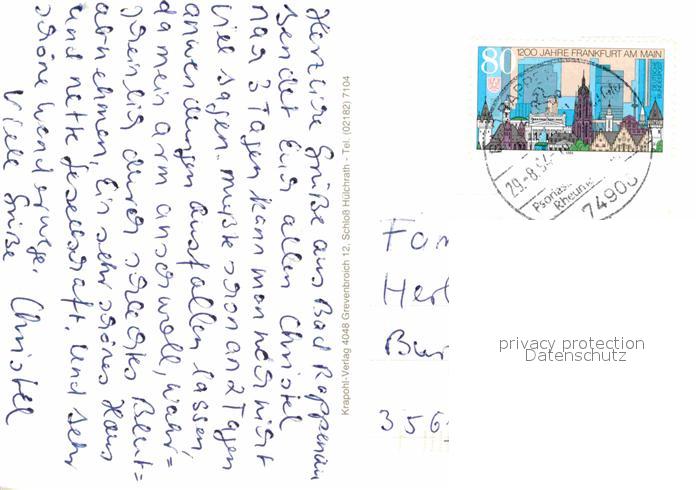 Herzliche Grüße aus Bad Rappenau
sendet Euch allen Christel
nach 3 Tagen kann man noch nicht
viel sagen. mußte schon an 2 Tagen
anwendungen ausfallen lassen,
da mein arm anschwoll, wahr=
scheinlich durch schlechtes Blut=
abnehmen. Ein sehr schönes Haus
und nette Gesellschaft. Und sehr
schöne Wanderwege.
Viele Grüße Christel
Krapohl-Verlag 4048 Grevenbroich 12, Schloß Hülchrath - Tel. (02182) 7104
80 1200 JAHRE FRANKFURT AM MAIN
DEUTSCHE BUNDESPOST
29.-8.94
Psorias
Rheum
74906
Fam
Herb
Bur
356
privacy protection
Datenschutz